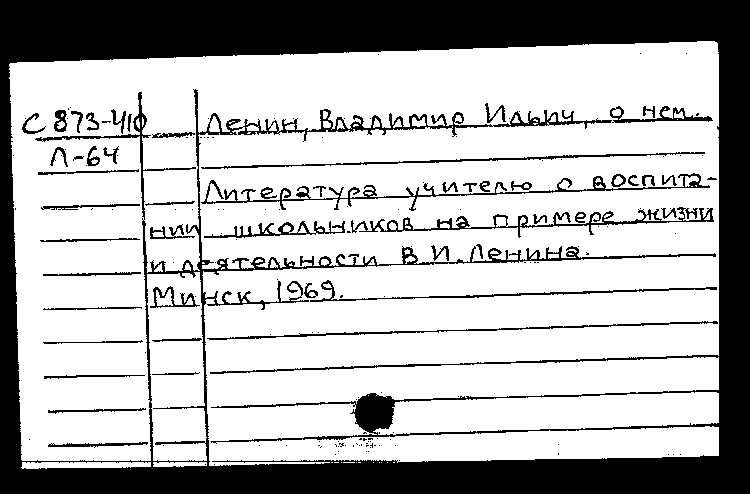 С 873-410
Л-64
Ленин, Владимир Ильич, о нем.
Литература учителю о воспита-
нии школьников на примере жизни
и деятельности В.И. Ленина.
Минск, 1969.